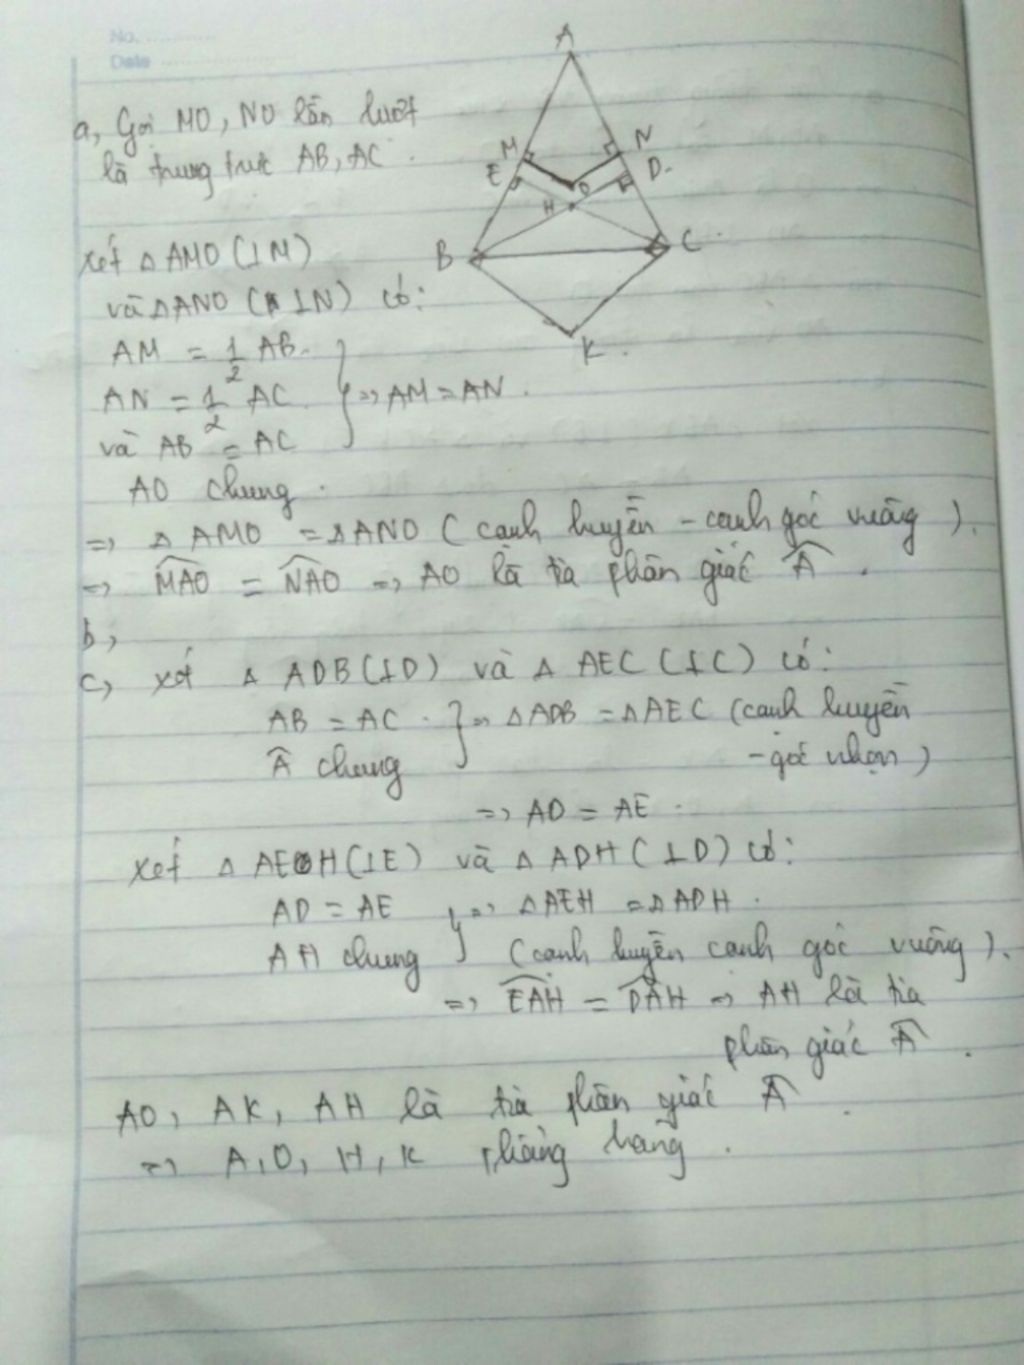 No. ............
Date ..................
A
a, Gọi MO, NO lần lượt
là trung trực AB, AC.
M
N
E
D.
O
H
B
C
K.
xét △ AMO (⊥M)
và △ANO (⊥N) có:
AM = 1/2 AB.
AN = 1/2 AC } => AM = AN.
và AB = AC
AO chung.
=> △ AMO = △ANO (cạnh huyền - cạnh góc vuông).
=> MAO = NAO => AO là tia phân giác Â.
b,
c, xét △ ADB (⊥D) và △ AEC (⊥C) có:
AB = AC. } => △ADB = △AEC (cạnh huyền
 chung - góc nhọn)
=> AD = AE.
xét △ AEH (⊥E) và △ ADH (⊥D) có:
AD = AE } => △AEH = △ADH.
AH chung (cạnh huyền cạnh góc vuông).
=> EAH = DAH => AH là tia
phân giác Â.
AO, AK, AH là tia phân giác Â.
=> A, O, H, K thẳng hàng.